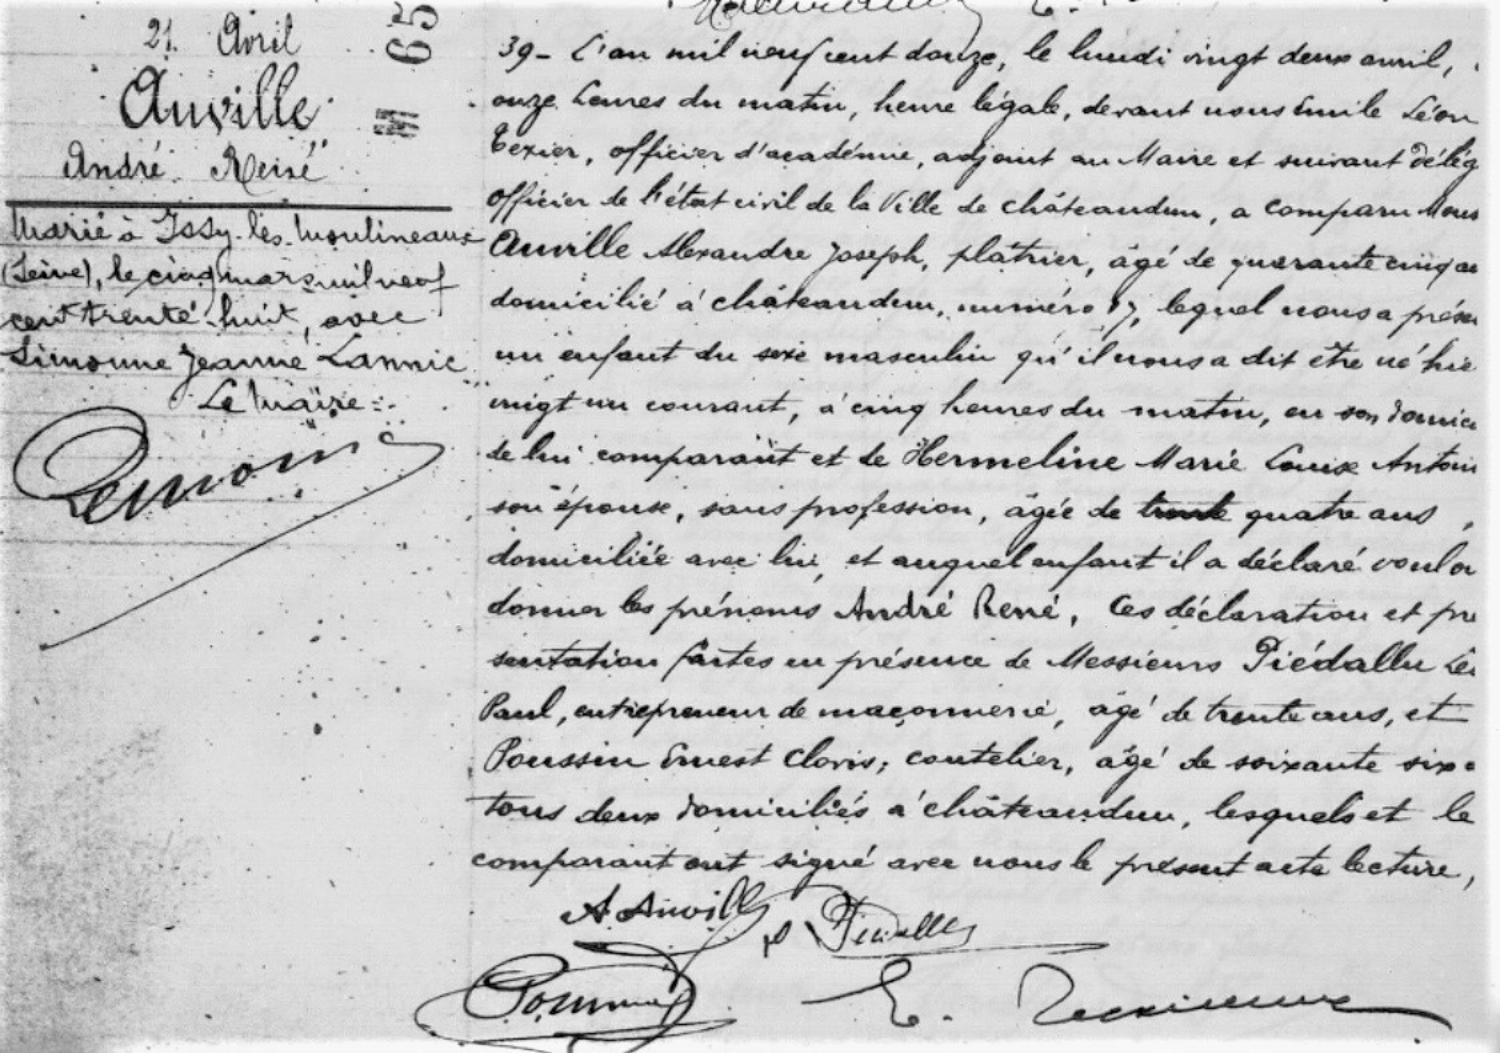 21. Avril
Auville
André René
M 65
Marié à Issy-les-Moulineaux
(Seine), le cinq mars mil neuf
cent trente huit, avec
Simonne Jeanne Lannic
Le Maire
39- L'an mil neuf cent douze, le lundi vingt deux avril,
onze heures du matin, heure légale, devant nous Emile Léon
Texier, officier d'académie, adjoint au Maire et suivant délég
officier de l'état civil de la Ville de Châteaudun, a comparu Mons
Auville Alexandre Joseph, plâtrier, âgé de quarante cinq an
domicilié à Châteaudun, numéro 17, lequel nous a présen
un enfant du sexe masculin qu'il nous a dit être né hie
vingt un courant, à cinq heures du matin, en son domici
de lui comparant et de Hermeline Marie Louise Antoin
son épouse, sans profession, âgée de trente quatre ans,
domiciliée avec lui, et auquel enfant il a déclaré voulo
donner les prénoms André René, Ces déclaration et pré
sentation faites en présence de Messieurs Piédallu Lé
Paul, entrepreneur de maçonnerie, âgé de trente ans, et
Poussin Ernest Cloris, coutelier, âgé de soixante six a
tous deux domiciliés à Châteaudun, lesquels et le
comparant ont signé avec nous le présent acte lecture,
A Auville
P Piedallu
E.